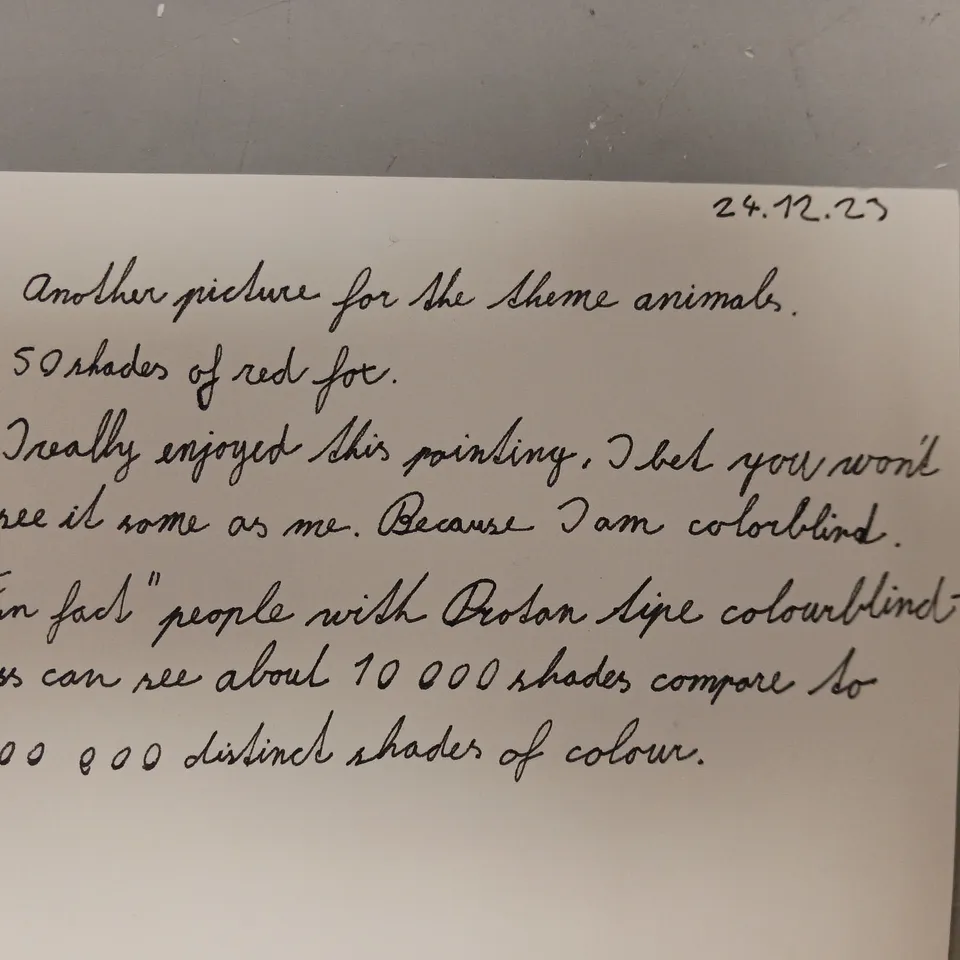 24.12.23
Another picture for the theme animals.
50 shades of red fox.
I really enjoyed this painting, I bet you won't
see it same as me. Because I am colorblind.
In fact "people with Protan tipe colourblind-
ss can see about 10 000 shades compare to
00 000 distinct shades of colour.